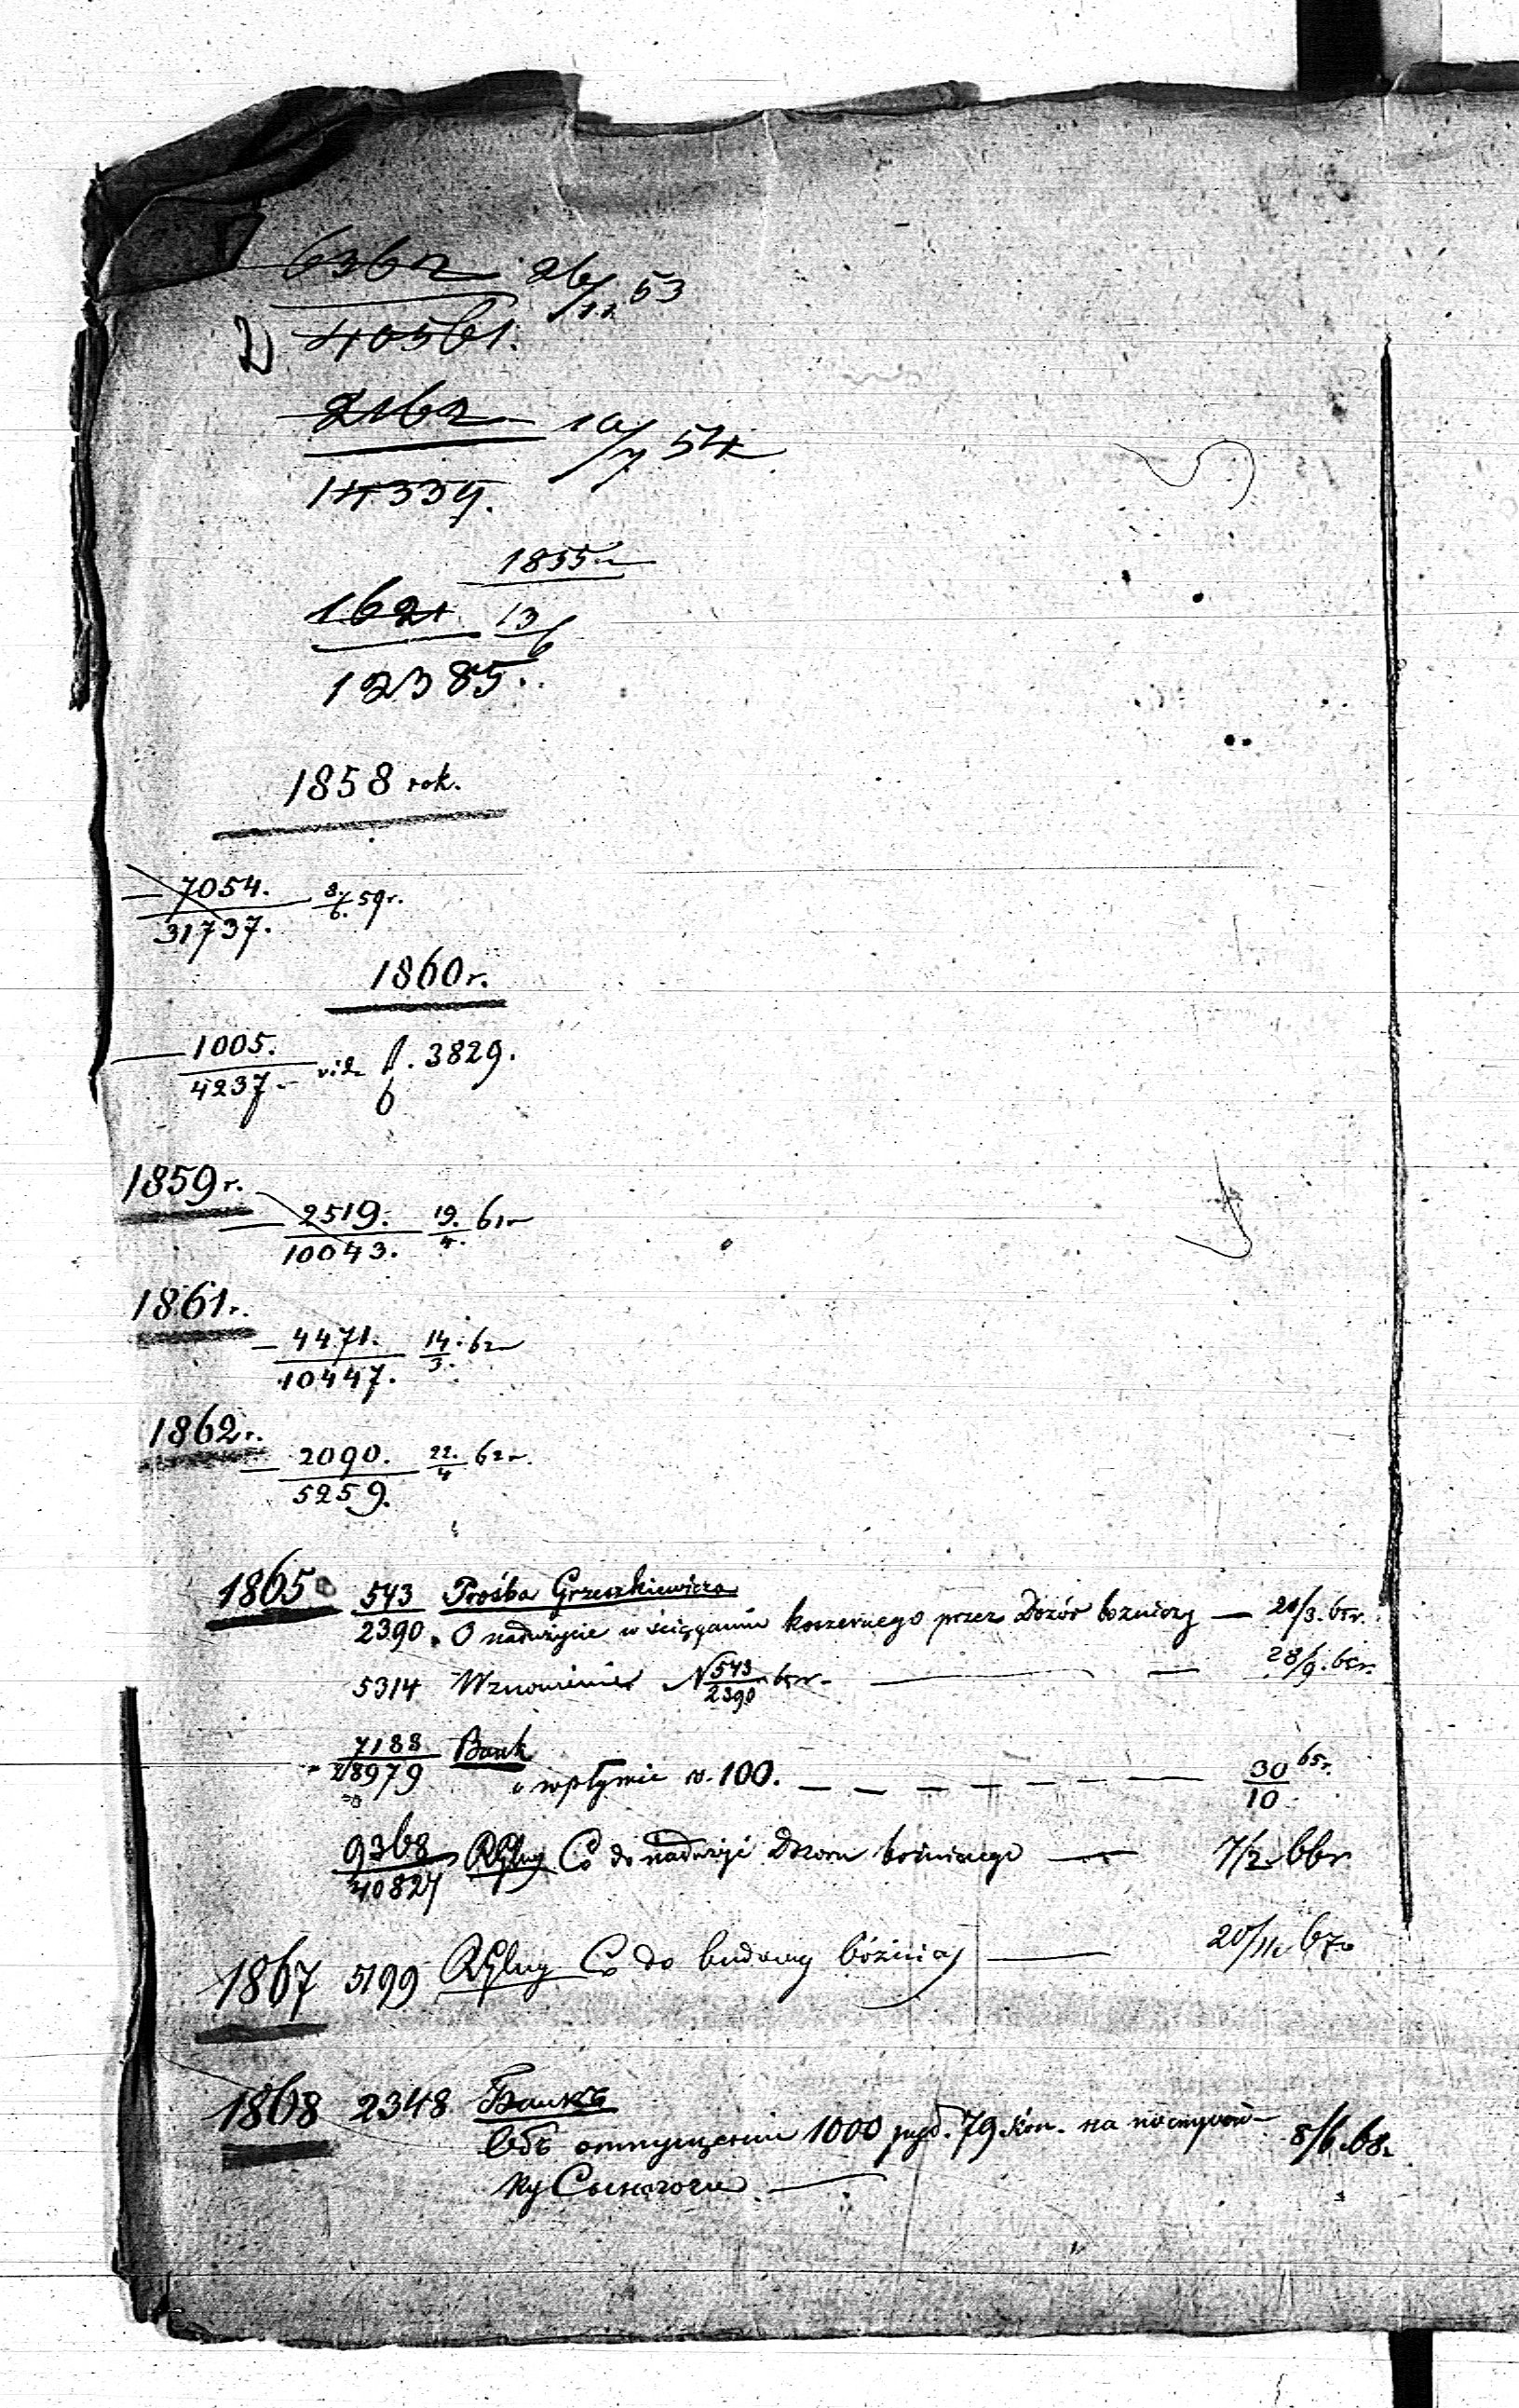 6362 26/11 53
40561.
2162 10/7 54
14339.
1855
1621 13/6
12385.
1858 rok.
7054. 8/6. 59r.
31737.
1860r.
1005. vide f. 3829.
4237. 6
1859r.
2519. 19./4. 61r
10043.
1861r.
4471. 14./3. 62
10447.
1862r.
2090. 22./4 62r.
5259.
1865 543 Prośba Grzeszkiewicza
2390. O nadużycie w ściąganiu koszernego przez Dozór bożniczy — 20/3. 65r.
5314 Wznowienie N 543/2390 65r. — 28/9. 65r.
7188 Bank
28979 o wpływie rs. 100. — 30/10 65r.
9368 Co do nadużyć Dozoru bożniczego — 7/2 66r
40827
1867 5199 Co do budowy bóżnicy — 20/11 67r
1868 2348 Банкъ
Объ отпущении 1000 руб. 79 коп. на постро- 8/6 68.
ку Синагоги —